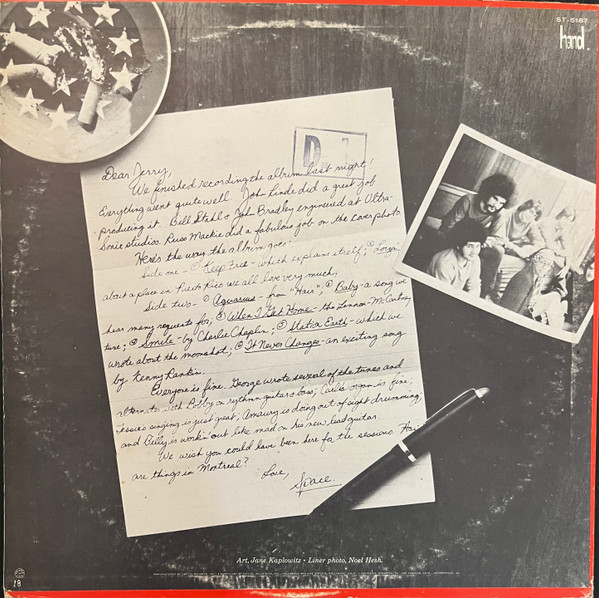 ST-5167
hand
D.J.
Dear Jerry,
We finished recording the album last night!
Everything went quite well. John Linde did a great job
producing it. Bill Stahl & John Bradley engineered at Ultra-
Sonic studios. Russ Mackie did a fabulous job on the cover photo.
Here's the way the album goes:
Side one - ① Keep Free - which explains itself; ②
about a place in Puerto Rico we all love very much,
Side two - ① Aquarius - from "Hair"; ② Baby - a song we
hear many requests for, ③ When I Get Home - the Lennon-McCartney
tune; ④ Smile - by Charlie Chaplin; ⑤ Station Earth - which we
wrote about the moonshot; ⑥ It Never Changes - an exciting song
by Kenny Rankin.
Everyone is fine. George wrote several of the tunes and
alternates with Bobby on rythmn guitar & bass; Carl's organ is fine;
singing is just great; Amaury is doing out of sight drumming;
and Billy is workin' out like mad on his new lead guitar.
We wish you could have been here for the sessions. How
are things in Montreal?
Love,
Space
Art, Jane Kaplowitz • Liner photo, Noel Hesh.
18